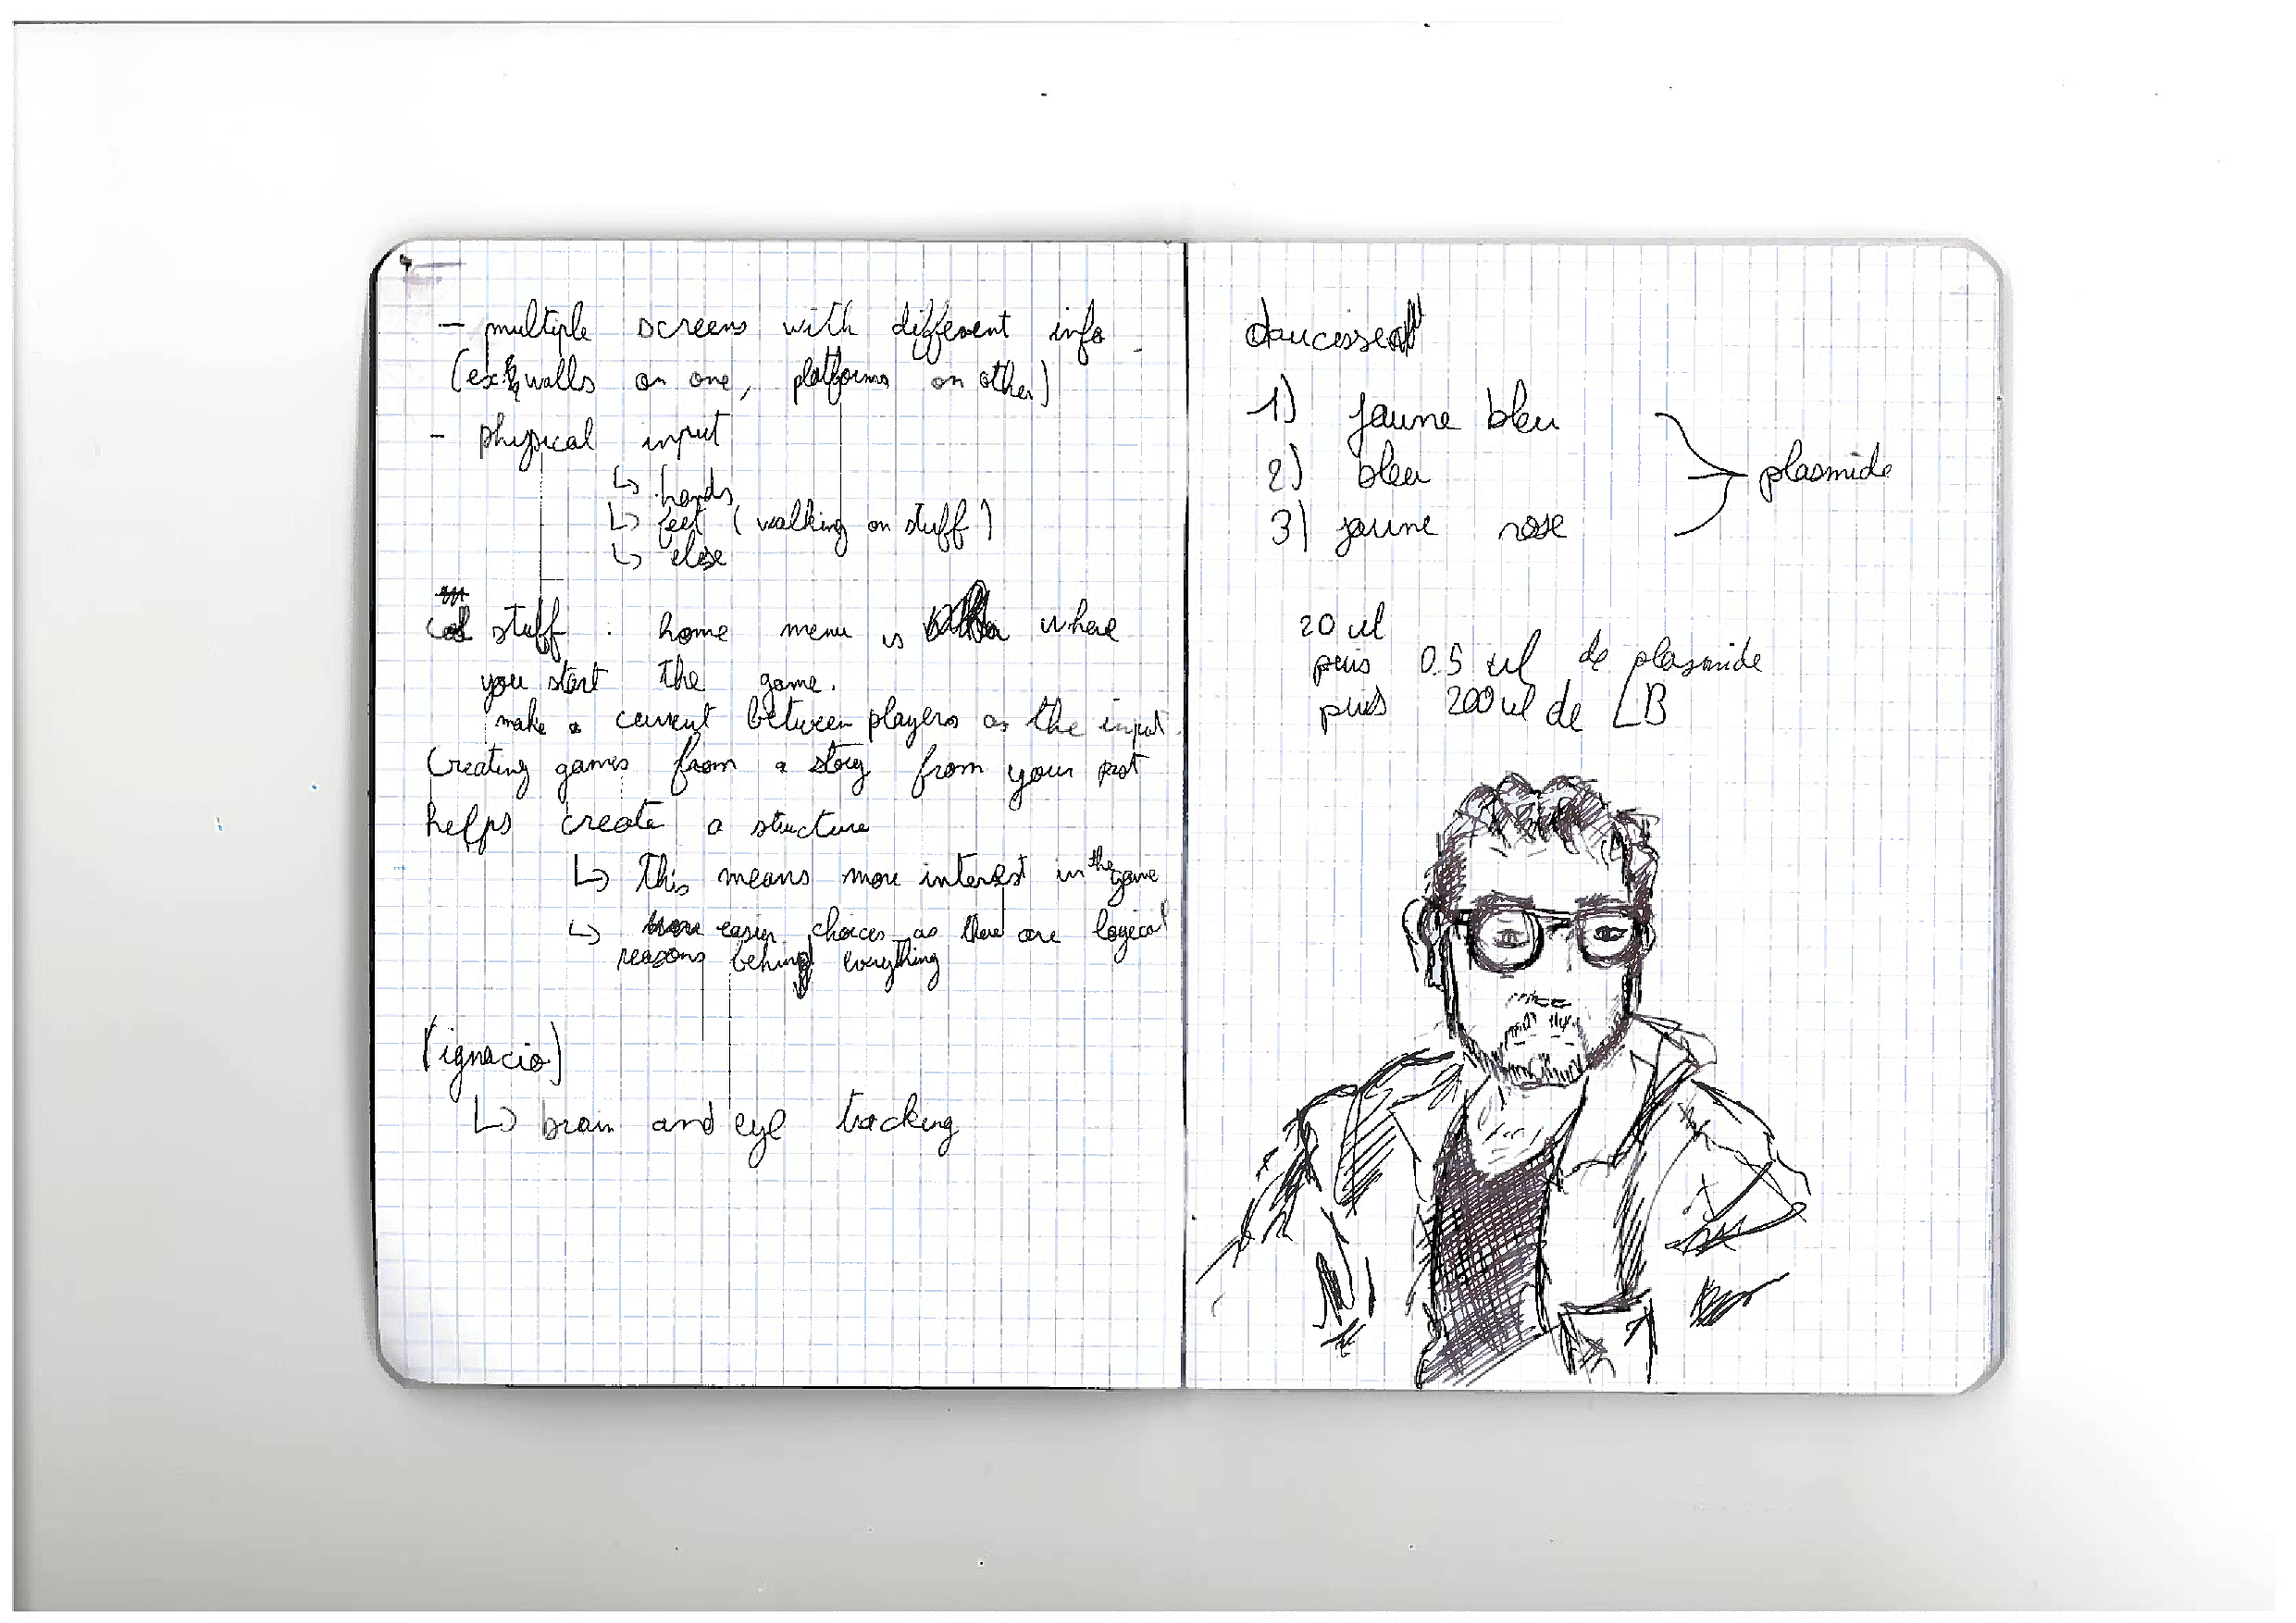 - multiple screens with different info
(ex: walls on one, platforms on other)
- physical input
↳ hands
↳ feet (walking on stuff)
↳ else
stuff. home menu is where
you start the game.
make a current between players as the input.
Creating games from a story from your past
helps create a structure
↳ This means more interest in the game
↳ easier choices as there are logical
reasons behind everything
(ignacio)
↳ brain and eye tracking
1) jaune bleu
2) bleu
3) jaune rose
plasmide
20 ul
puis 0.5 ul de plasmide
puis 200 ul de LB